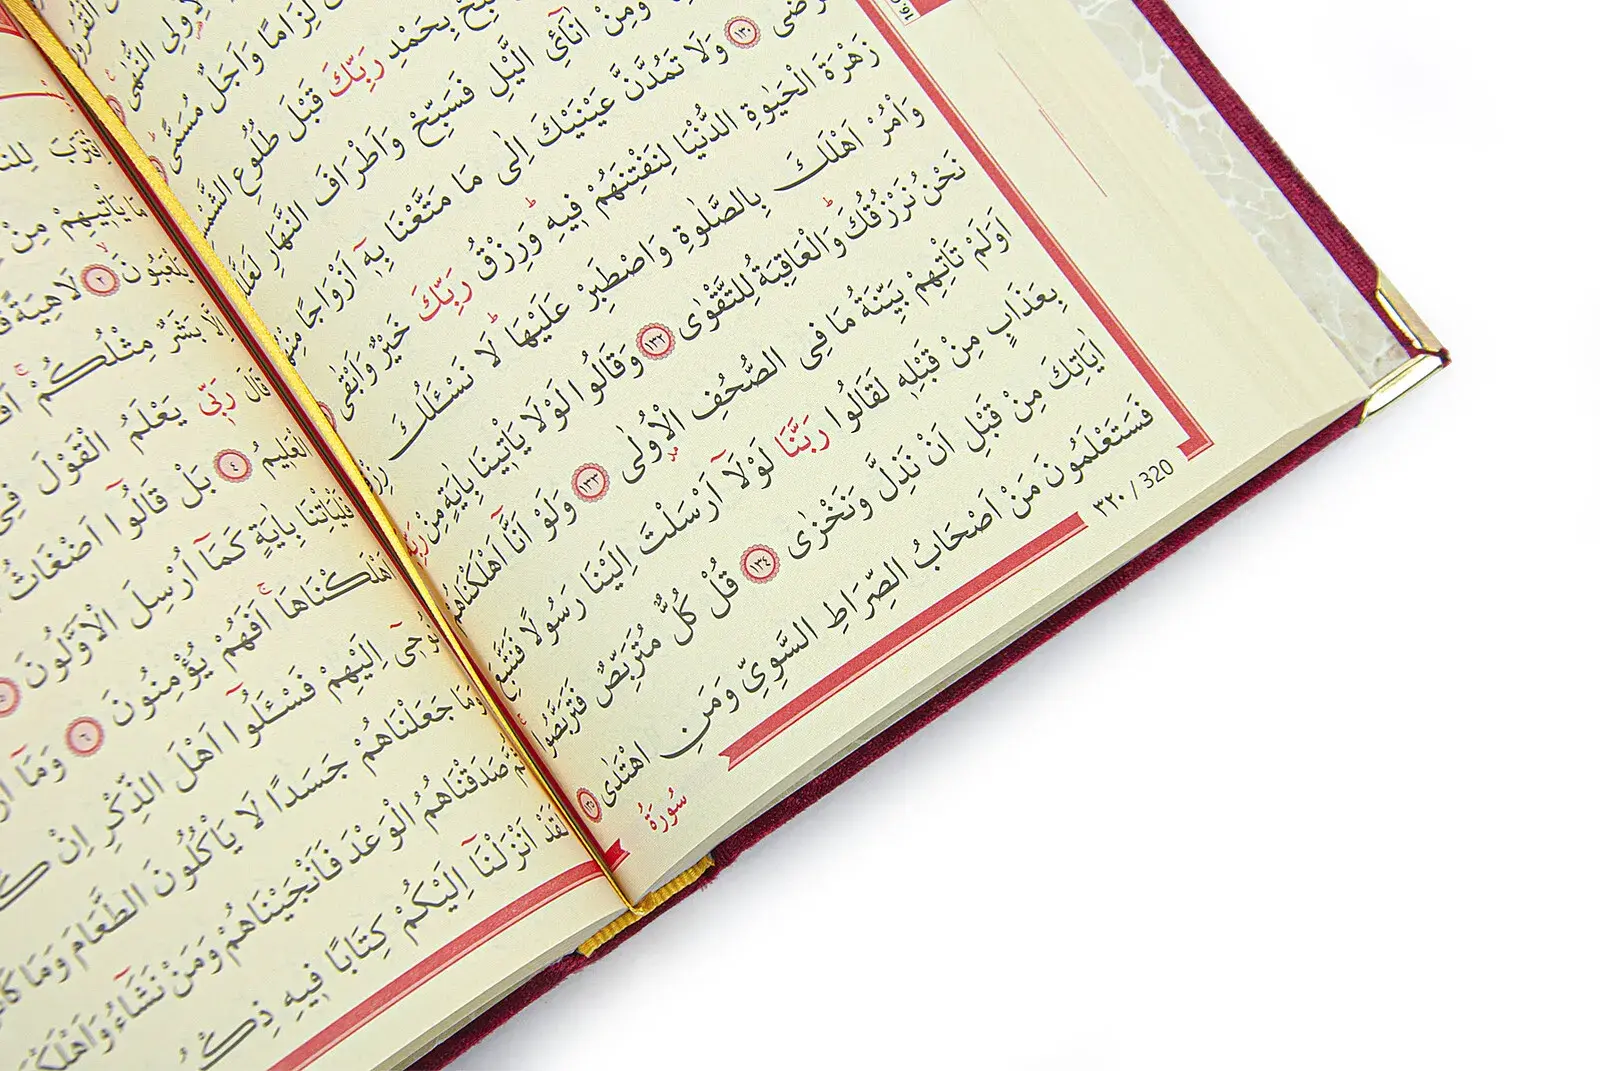 الْاُولِي النُّهٰى
لِزَامًا وَاَجَلٌ مُسَمًّى
بِحَمْدِ رَبِّكَ قَبْلَ طُلُوعِ الشَّمْسِ
وَمِنْ اٰنَٓائِ الَّيْلِ فَسَبِّحْ وَاَطْرَافَ النَّهَارِ لَعَلَّكَ
تَرْضٰى ١٣٠ وَلَا تَمُدَّنَّ عَيْنَيْكَ اِلٰى مَا مَتَّعْنَا بِه۪ٓ اَزْوَاجًا مِنْهُمْ
زَهْرَةَ الْحَيٰوةِ الدُّنْيَا لِنَفْتِنَهُمْ ف۪يهِ وَرِزْقُ رَبِّكَ خَيْرٌ وَاَبْقٰى
وَأْمُرْ اَهْلَكَ بِالصَّلٰوةِ وَاصْطَبِرْ عَلَيْهَا لَا نَسْـَٔلُكَ رِزْقًا
نَحْنُ نَرْزُقُكَ وَالْعَاقِبَةُ لِلتَّقْوٰى ١٣٢ وَقَالُوا لَوْلَا يَأْت۪ينَا بِاٰيَةٍ مِنْ رَبِّه۪
اَوَلَمْ تَأْتِهِمْ بَيِّنَةُ مَا فِي الصُّحُفِ الْاُولٰى ١٣٣ وَلَوْ اَنَّٓا اَهْلَكْنَاهُمْ
بِعَذَابٍ مِنْ قَبْلِه۪ لَقَالُوا رَبَّنَا لَوْلَٓا اَرْسَلْتَ اِلَيْنَا رَسُولًا فَنَتَّبِعَ
اٰيَاتِكَ مِنْ قَبْلِ اَنْ نَذِلَّ وَنَخْزٰى ١٣٤ قُلْ كُلٌّ مُتَرَبِّصٌ فَتَرَبَّصُوا
فَسَتَعْلَمُونَ مَنْ اَصْحَابُ الصِّرَاطِ السَّوِيِّ وَمَنِ اهْتَدٰى ١٣٥
٣٢٠ / 320
سُورَةُ
اِقْتَرَبَ لِلنَّاسِ
مَا يَأْت۪يهِمْ مِنْ
يَلْعَبُونَ ٢ لَاهِيَةً
اِلَّا بَشَرٌ مِثْلُكُمْ
قَالَ رَبّ۪ي يَعْلَمُ الْقَوْلَ فِي
الْعَل۪يمُ ٤ بَلْ قَالُٓوا اَضْغَاثُ
فَلْيَأْتِنَا بِاٰيَةٍ كَمَٓا اُرْسِلَ الْاَوَّلُونَ ٥
اَهْلَكْنَاهَا اَفَهُمْ يُؤْمِنُونَ ٦ وَمَٓا
نُوح۪ٓي اِلَيْهِمْ فَسْـَٔلُٓوا اَهْلَ الذِّكْرِ اِنْ
وَمَا جَعَلْنَاهُمْ جَسَدًا لَا يَأْكُلُونَ الطَّعَامَ وَمَا
ثُمَّ صَدَقْنَاهُمُ الْوَعْدَ فَاَنْجَيْنَاهُمْ وَمَنْ نَشَٓاءُ وَاَهْلَكْنَا
لَقَدْ اَنْزَلْنَٓا اِلَيْكُمْ كِتَابًا ف۪يهِ ذِكْرُ